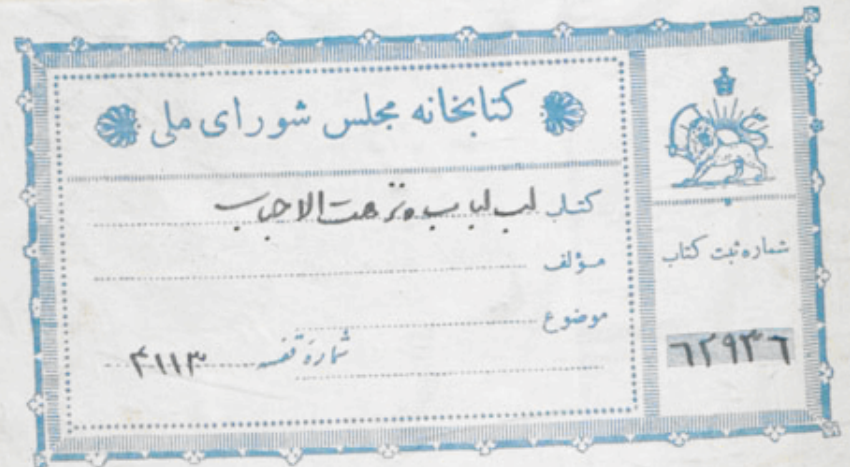 کتابخانه مجلس شورای ملی
کتاب لب لباب و نزهت الاحباب
مؤلف
موضوع
شماره قفسه ۴۱۱۳
شماره ثبت کتاب
۶۲۹۳۶